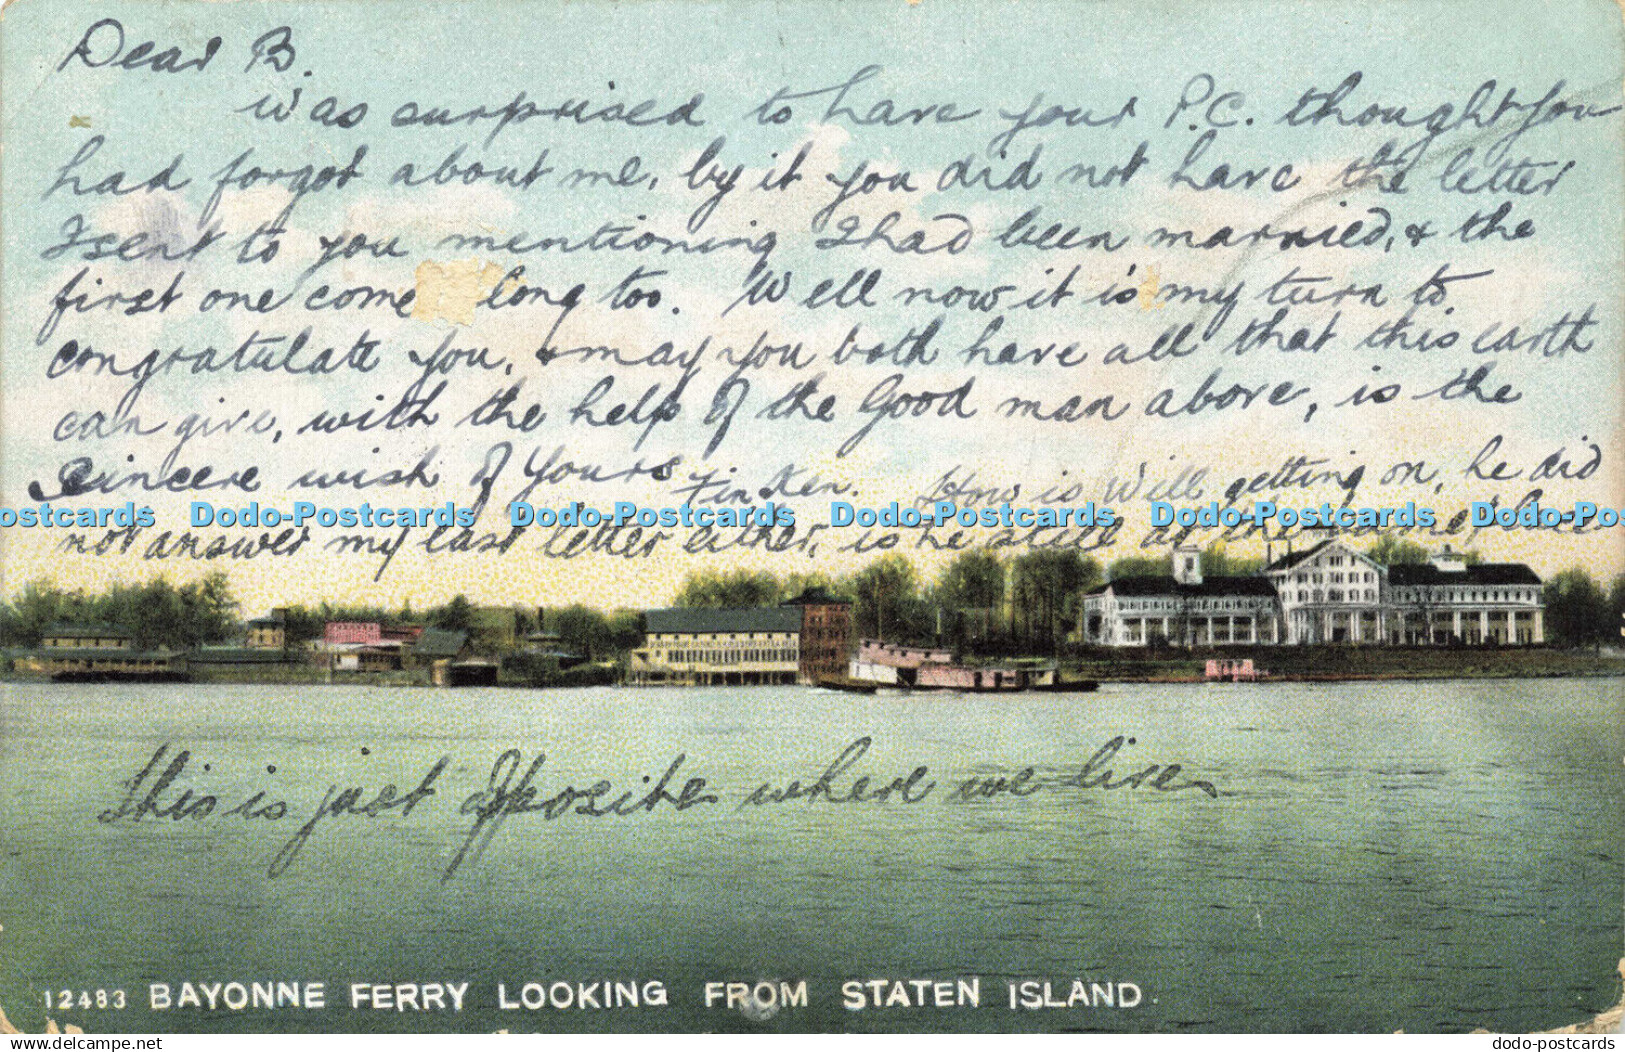 Dear B.
Was surprised to have your P.C. thought you
had forgot about me, by it you did not have the letter
I sent to you mentioning I had been married, & the
first one come long too. Well now it is my turn to
congratulate you, & may you both have all that this earth
can give, with the help of the Good man above, is the
Sincere wish of Yours
How is Will getting on, he did
not answer my last letter either, is he still at the same place
Dodo-Postcards Dodo-Postcards Dodo-Postcards Dodo-Postcards Dodo-Postcards
This is just opposite where we live
12483 BAYONNE FERRY LOOKING FROM STATEN ISLAND.
www.delcampe.net/KMC
dodo-postcards